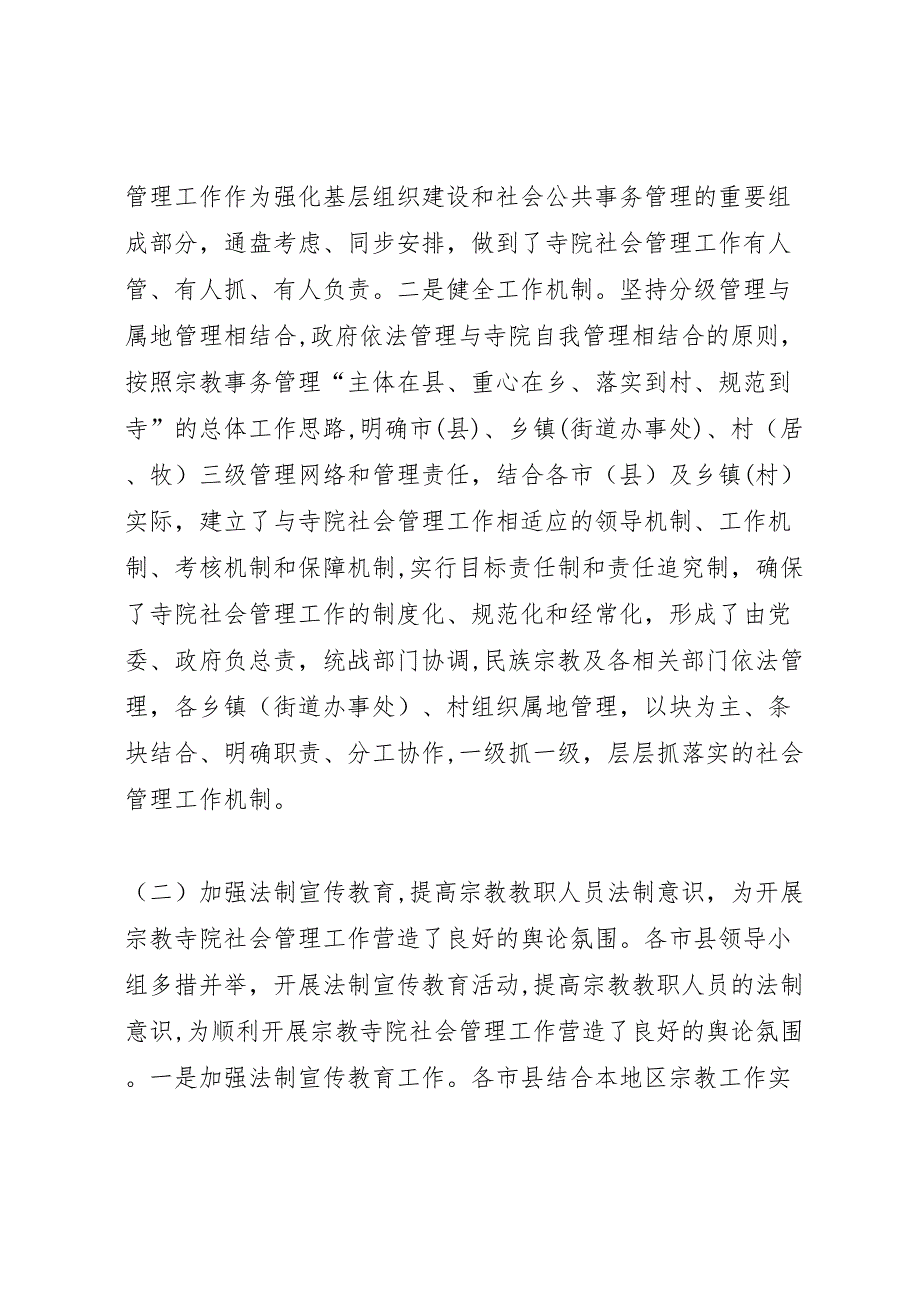 管理工作作为强化基层组织建设和社会公共事务管理的重要组
成部分，通盘考虑、同步安排，做到了寺院社会管理工作有人
管、有人抓、有人负责。二是健全工作机制。坚持分级管理与
属地管理相结合,政府依法管理与寺院自我管理相结合的原则，
按照宗教事务管理“主体在县、重心在乡、落实到村、规范到
寺”的总体工作思路,明确市(县)、乡镇(街道办事处)、村（居
、牧）三级管理网络和管理责任，结合各市（县）及乡镇(村）
实际，建立了与寺院社会管理工作相适应的领导机制、工作机
制、考核机制和保障机制,实行目标责任制和责任追究制，确保
了寺院社会管理工作的制度化、规范化和经常化，形成了由党
委、政府负总责，统战部门协调,民族宗教及各相关部门依法管
理，各乡镇（街道办事处）、村组织属地管理，以块为主、条
块结合、明确职责、分工协作,一级抓一级，层层抓落实的社会
管理工作机制。
（二）加强法制宣传教育,提高宗教教职人员法制意识，为开展
宗教寺院社会管理工作营造了良好的舆论氛围。各市县领导小
组多措并举，开展法制宣传教育活动,提高宗教教职人员的法制
意识,为顺利开展宗教寺院社会管理工作营造了良好的舆论氛围
。一是加强法制宣传教育工作。各市县结合本地区宗教工作实